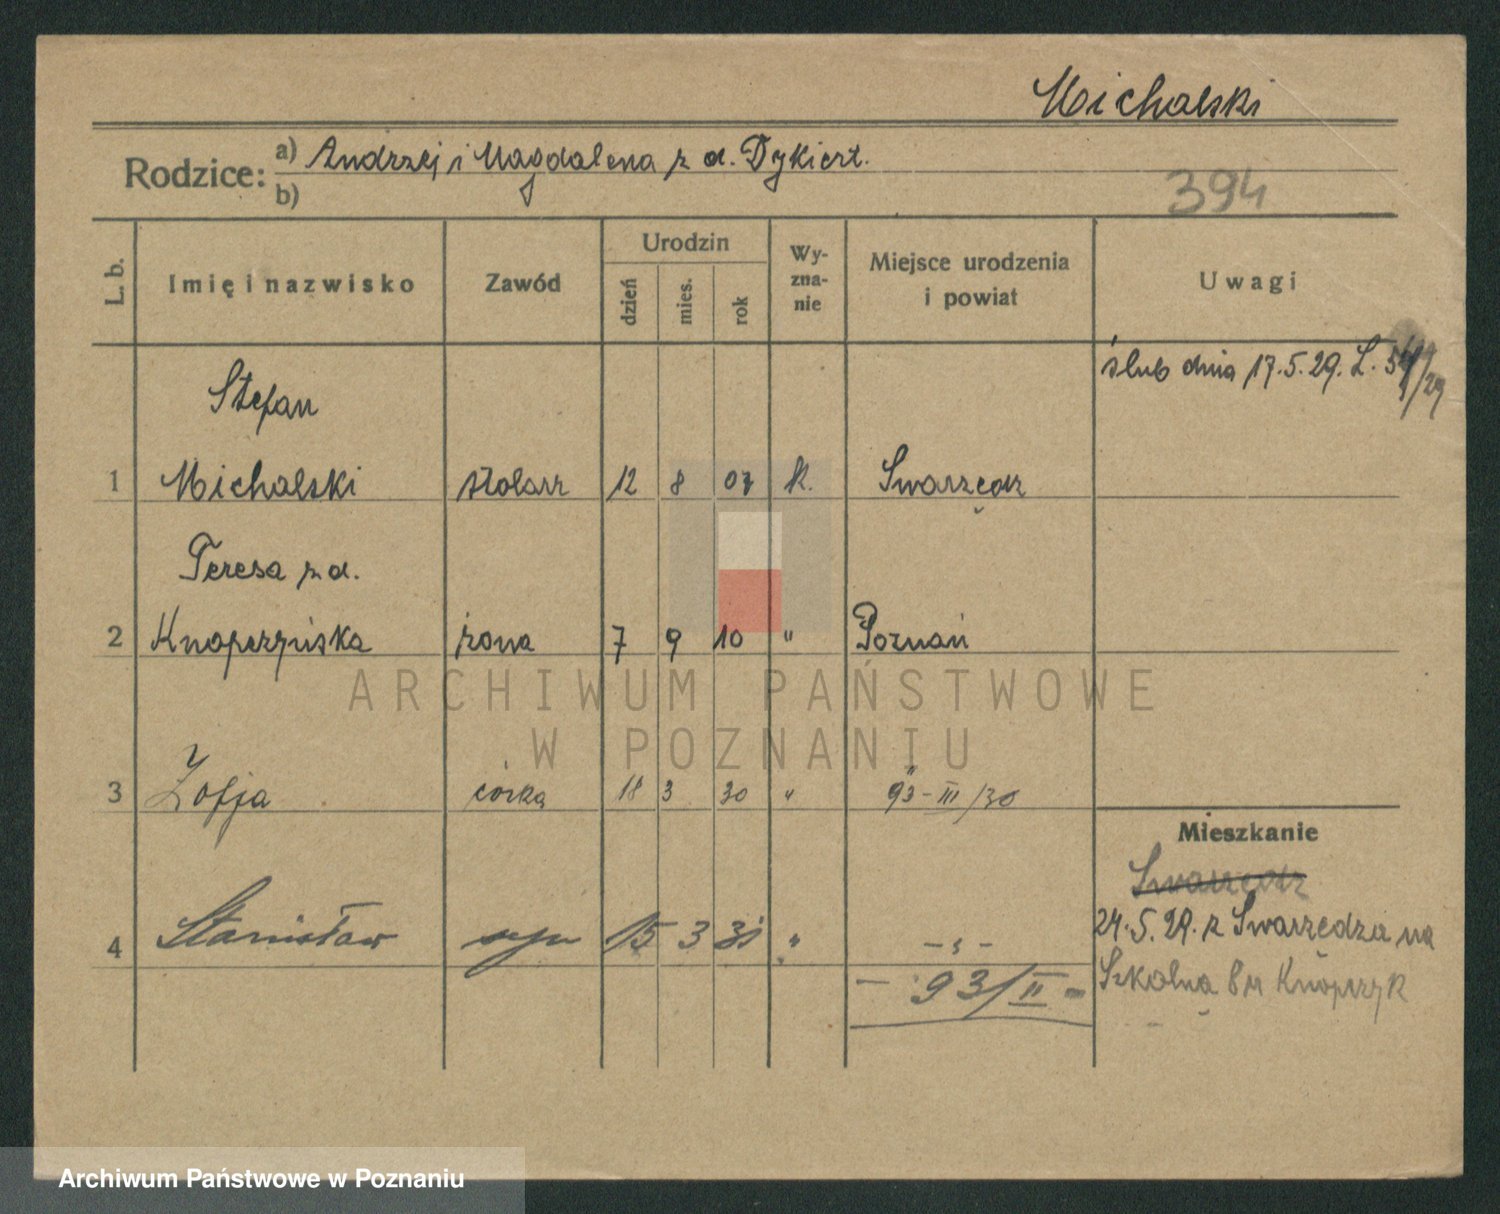 Michalski
Rodzice: a) Andrzej i Magdalena z d. Dykiert.
b)
394
L. b.
Imię i nazwisko
Zawód
Urodzin
dzień
mies.
rok
Wy-
zna-
nie
Miejsce urodzenia
i powiat
Uwagi
ślub dnia 17.5.29. L.
Stefan
1 Michalski stolarz 12 8 07 k. Swarzędz
Teresa z d.
2 Knopczyńska żona 7 9 10 " Poznań
3 Zofja córka 18 3 30 " "
93-III/30
4 Stanisław syn 15 3 31 " - " -
- 93/II -
Mieszkanie
Swarzędz
24.5.29. z Swarzędza na
Szkolną 8
ARCHIWUM PAŃSTWOWE
W POZNANIU
Archiwum Państwowe w Poznaniu